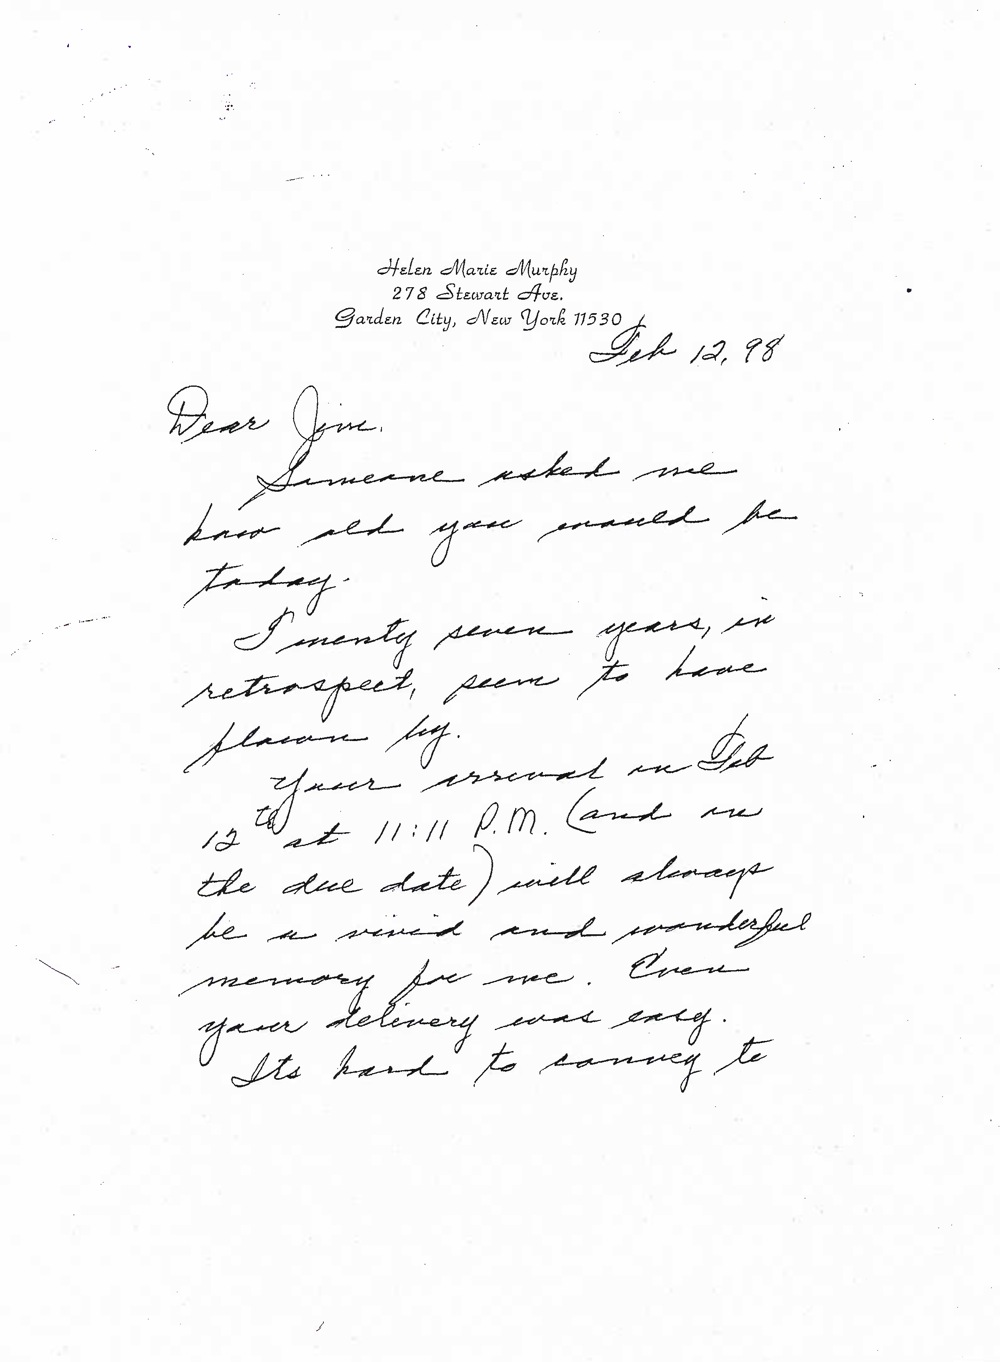 Helen Marie Murphy
278 Stewart Ave.
Garden City, New York 11530
Feb 12, 98
Dear Jim.
Someone asked me
how old you would be
today.
Twenty seven years, in
retrospect, seem to have
flown by.
Your arrival on Feb
12th at 11:11 P.M. (and on
the due date) will always
be a vivid and wonderful
memory for me. Even
your delivery was easy.
Its hard to convey to